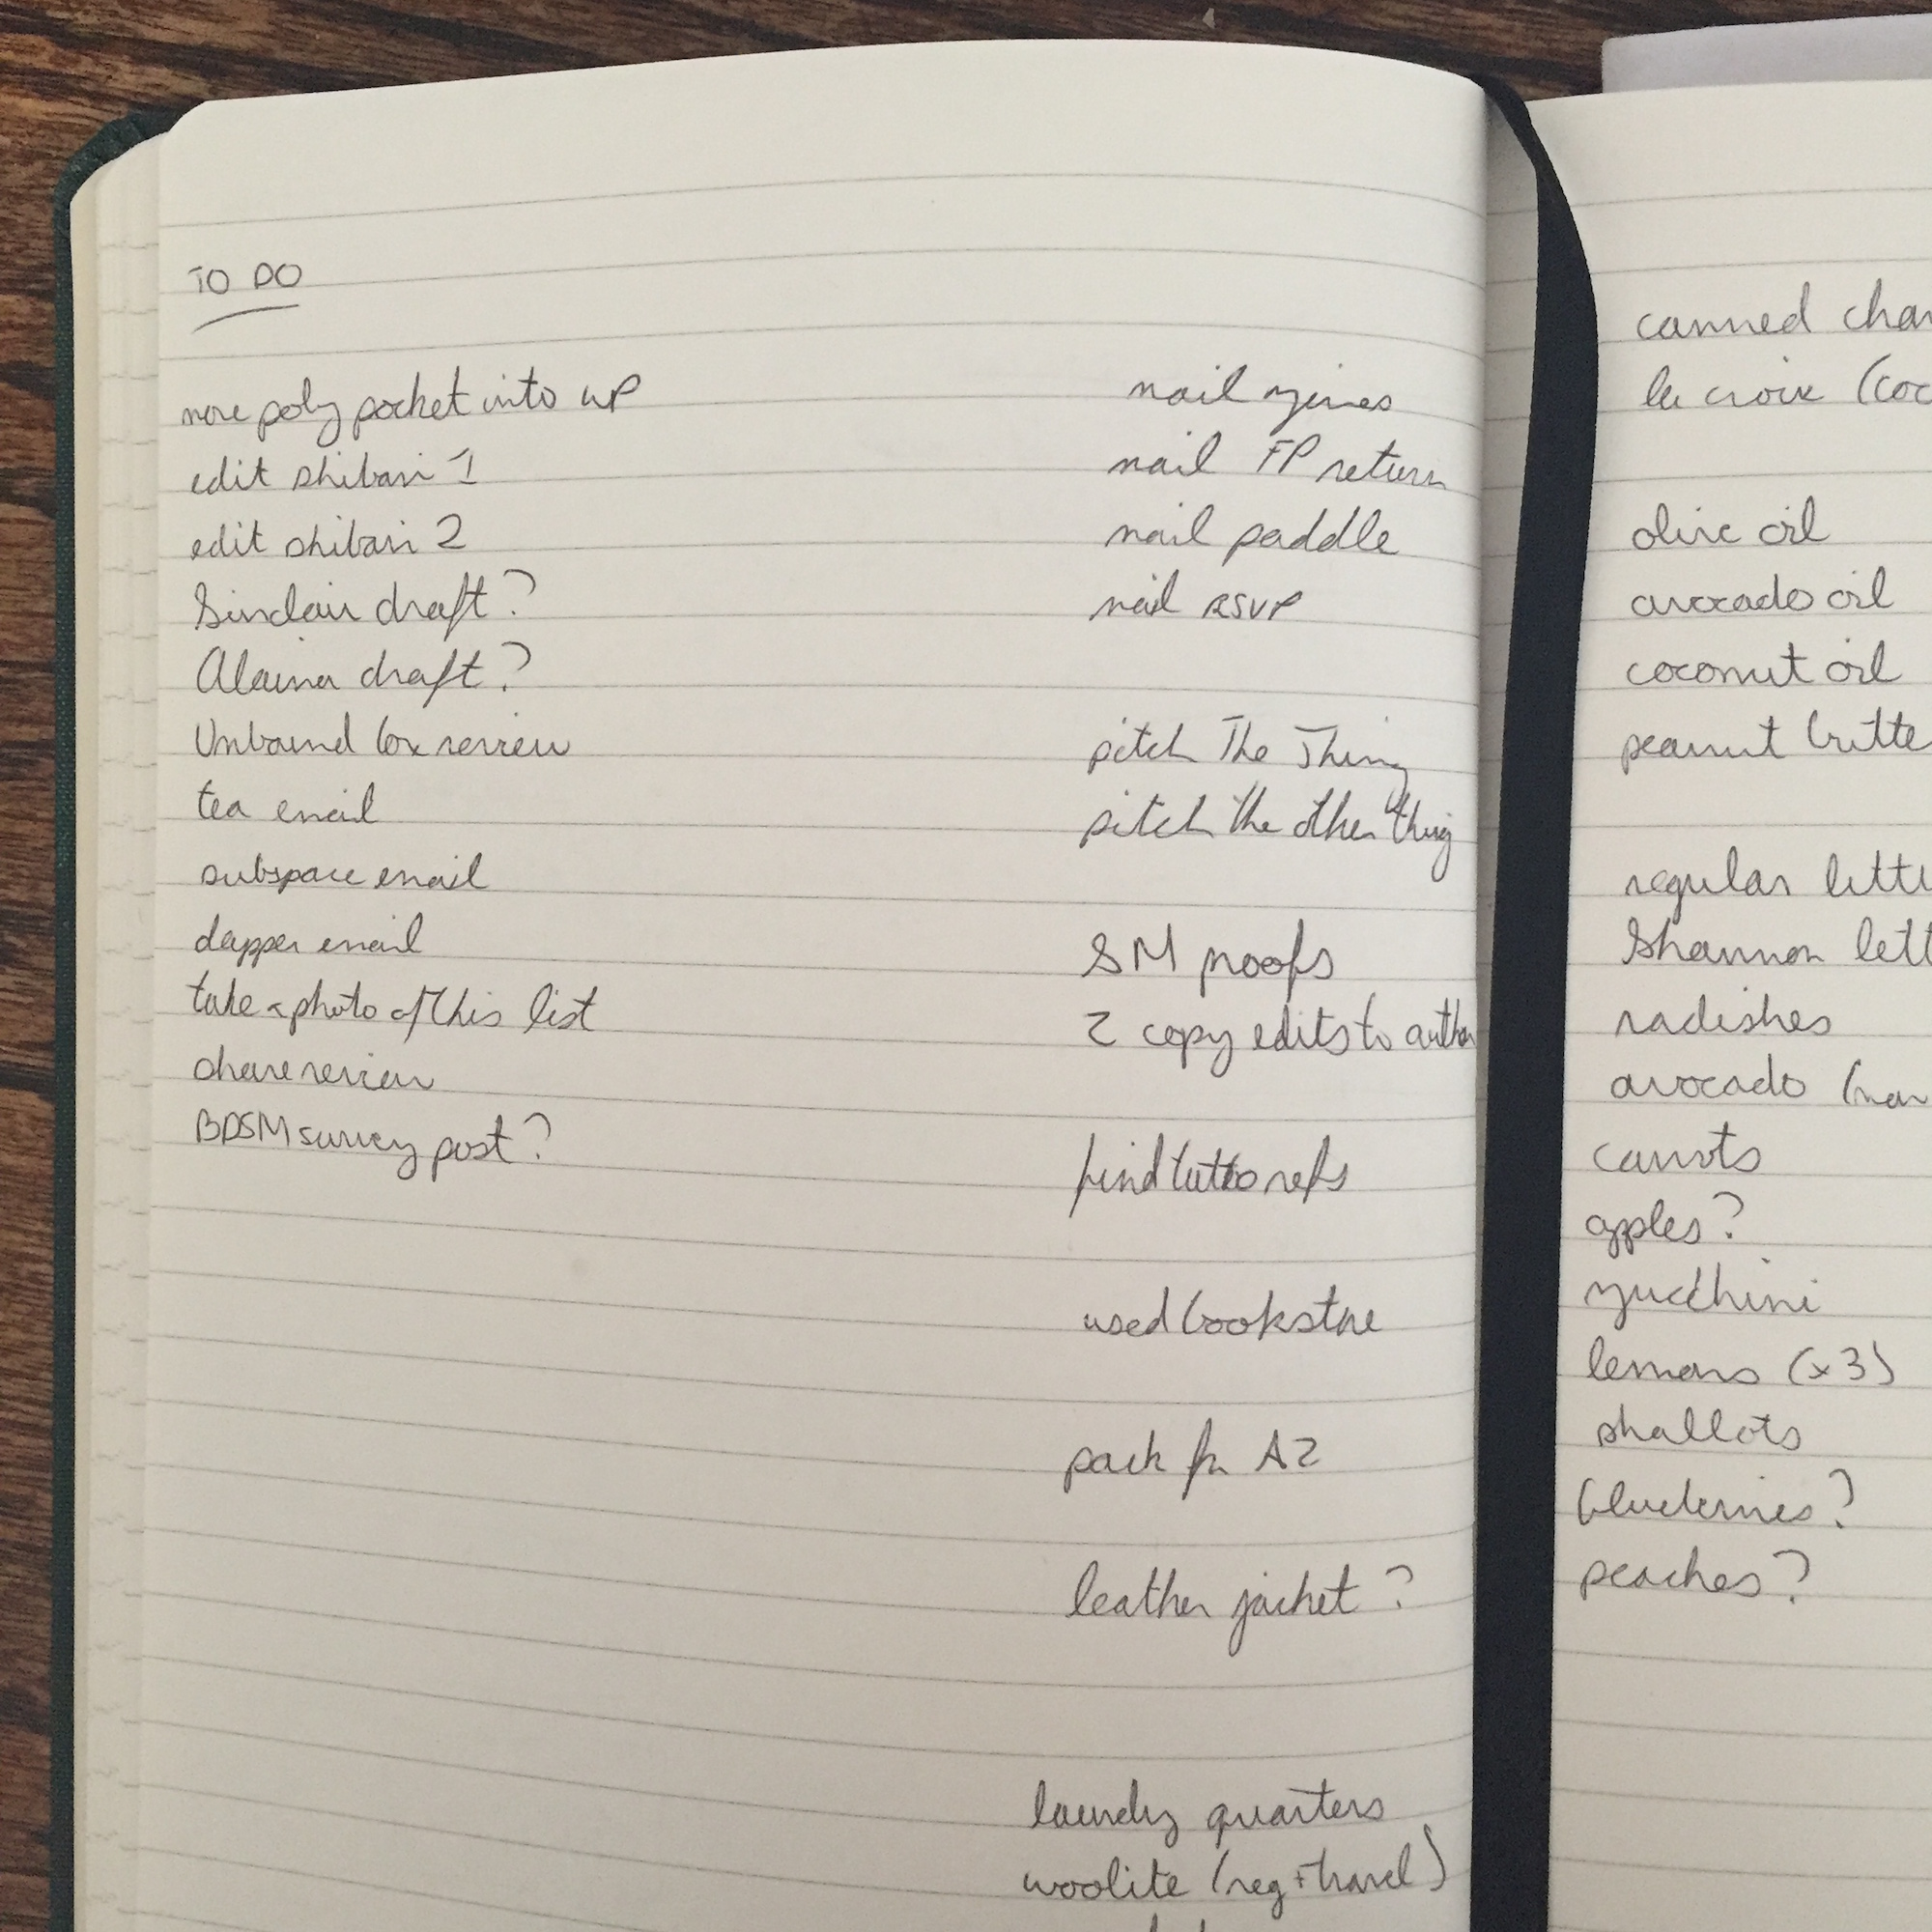 TO DO
move poly pocket into wp
edit shibari 1
edit shibari 2
Sinclair draft?
Alaina draft?
Unbound box review
tea email
subspace email
dapper email
take a photo of this list
share review
BDSM survey post?
mail zines
mail FP return
mail paddle
mail RSVP
pitch The Thing
pitch the other thing
SM proofs
2 copy edits to author
find tattoo refs
used bookstore
pack for A2
leather jacket?
laundry quarters
woolite (reg + travel)
canned
la croix (coc
olive oil
avocado oil
coconut oil
peanut butte
regular lettu
Shannon lett
radishes
avocado
carrots
apples?
zucchini
lemons (x3)
shallots
blueberries?
peaches?